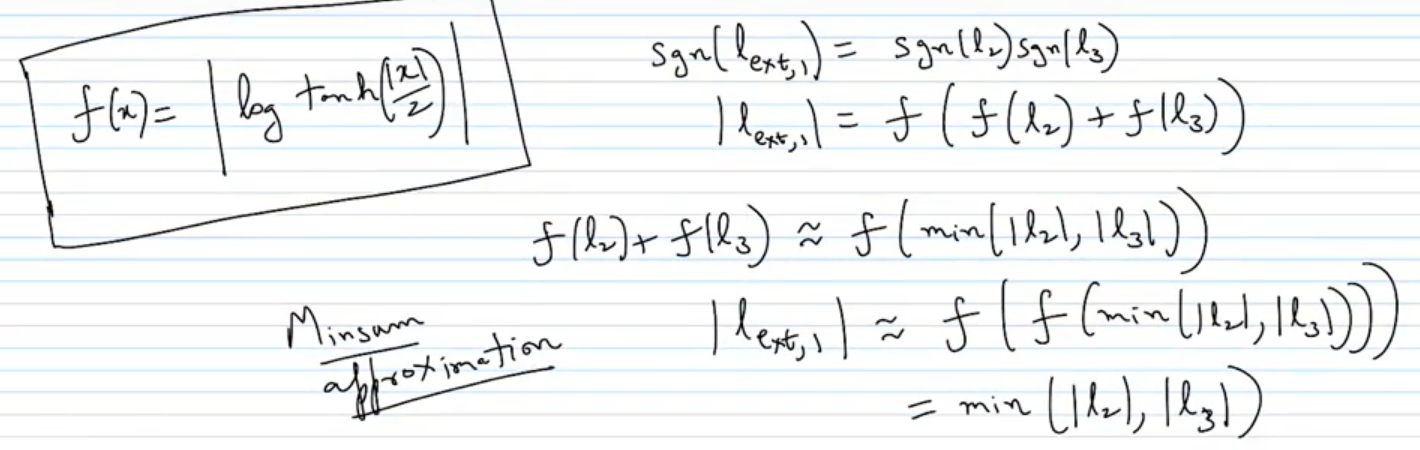 f(x) = | log tanh(|x|/2) |
sgn(l_ext,1) = sgn(l_2) sgn(l_3)
|l_ext,1| = f(f(l_2) + f(l_3))
f(l_2) + f(l_3) ≈ f(min(|l_2|, |l_3|))
Minsum
approximation
|l_ext,1| ≈ f(f(min(|l_2|, |l_3|)))
= min(|l_2|, |l_3|)